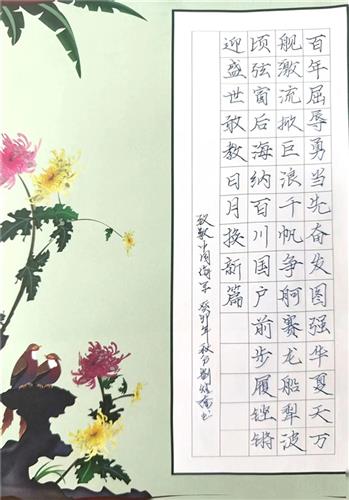 百年屈辱勇当先奋发图强华夏天万
舰激流掀巨浪千帆争舸赛龙船犁波
顷弦窗后海纳百川国户前步履铿锵
迎盛世敢教日月换新篇
致敬中国海军 癸卯年秋月刘